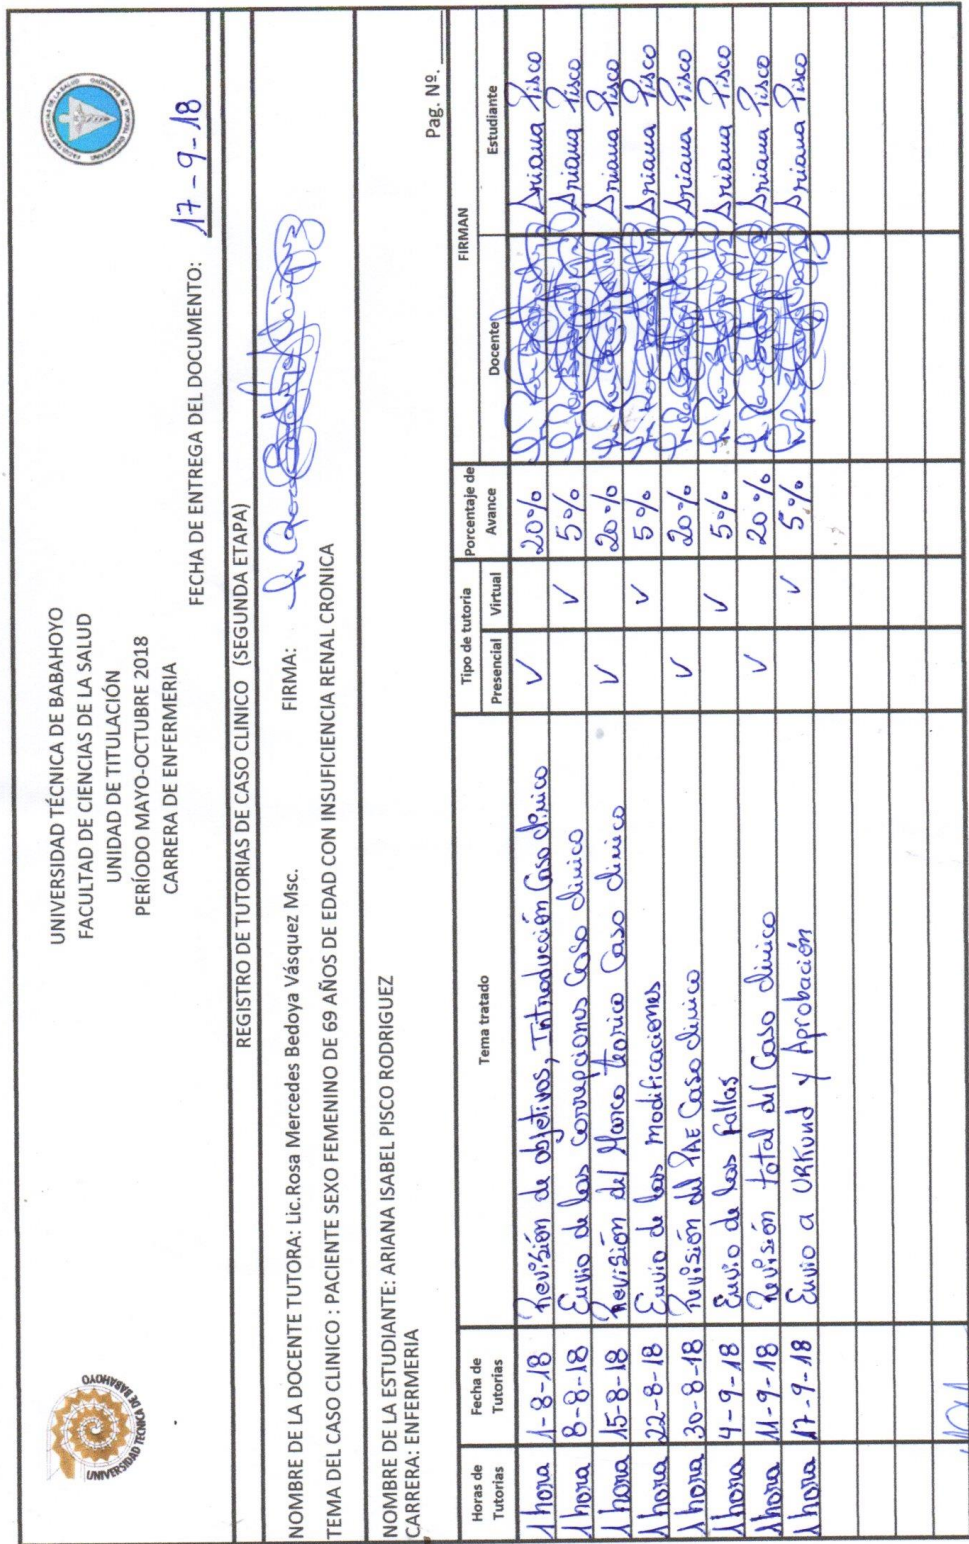 UNIVERSIDAD TECNICA DE BABAHOYO
UNIVERSIDAD TÉCNICA DE BABAHOYO
FACULTAD DE CIENCIAS DE LA SALUD
UNIDAD DE TITULACIÓN
PERÍODO MAYO-OCTUBRE 2018
CARRERA DE ENFERMERIA
FECHA DE ENTREGA DEL DOCUMENTO: 17-9-18
REGISTRO DE TUTORIAS DE CASO CLINICO (SEGUNDA ETAPA)
NOMBRE DE LA DOCENTE TUTORA: Lic.Rosa Mercedes Bedoya Vásquez Msc. FIRMA:
TEMA DEL CASO CLINICO : PACIENTE SEXO FEMENINO DE 69 AÑOS DE EDAD CON INSUFICIENCIA RENAL CRONICA
NOMBRE DE LA ESTUDIANTE: ARIANA ISABEL PISCO RODRIGUEZ
CARRERA: ENFERMERIA
Pag. Nº.
Horas de Tutorias Fecha de Tutorias Tema tratado Tipo de tutoria Presencial Virtual Porcentaje de Avance FIRMAN Docente Estudiante
1 hora 1-8-18 Revisión de objetivos, Introducción Caso clinico ✓ 20% Ariana Pisco
1 hora 8-8-18 Envio de las correpciones Caso clinico ✓ 5% Ariana Pisco
1 hora 15-8-18 Revisión del Marco teorico Caso clinico ✓ 20% Ariana Pisco
1 hora 22-8-18 Envio de las modificaciones ✓ 5% Ariana Pisco
1 hora 30-8-18 Revisión del PAE Caso clinico ✓ 20% Ariana Pisco
1 hora 4-9-18 Envio de las fallas ✓ 5% Ariana Pisco
1 hora 11-9-18 Revisión total del Caso clinico ✓ 20% Ariana Pisco
1 hora 17-9-18 Envio a URKund y Aprobación ✓ 5% Ariana Pisco